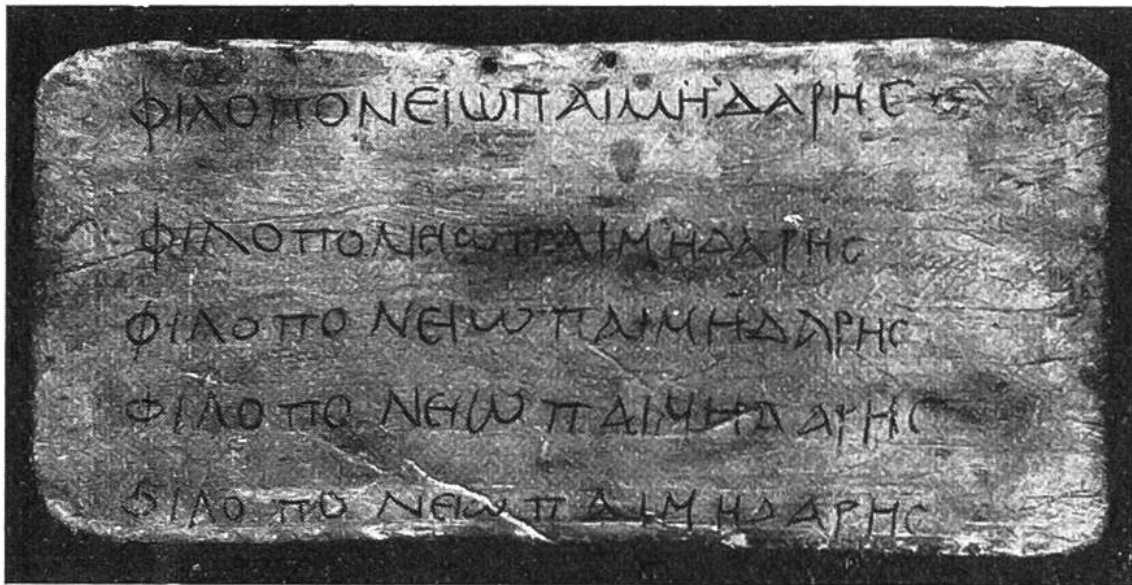 ΦΙΛΟΠΟΝΕΙΩΠΑΙΜΗΔΑΡΗC
ΦΙΛΟΠΟΝΗΩΠΑΙΜΗΔΑΡΗC
ΦΙΛΟΠΟΝΕΙΩΠΑΙΜΗΔΑΡΗC
ΦΙΛΟΠΟΝΕΙΩΠΑΙΜΗΔΑΡΗC
ΦΙΛΟΠΟΝΕΙΩΠΑΙΜΗΔΑΡΗC